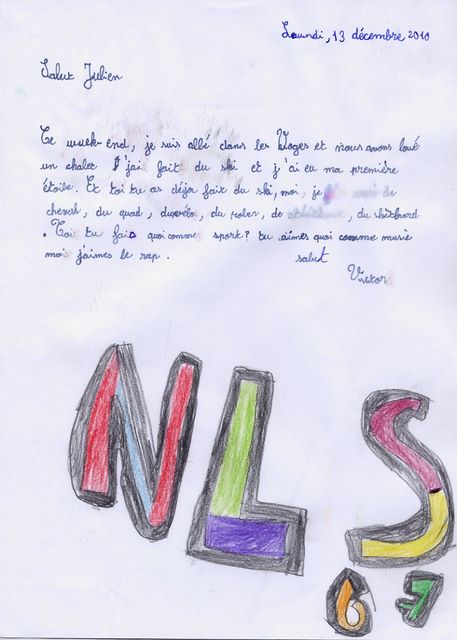 Lundi, 13 décembre 2010
Salut Julien
Ce week-end, je suis allé dans les Voges et nous avons loué
un chalet J'ai fait du ski et j'ai eu ma première
étoile. Et toi tu as déja fait du ski, moi, je
cheval, du quad, du vélo, du roler, de , du skitbord
. Toi tu fais quoi comme sport? tu aimes quoi comme music
moi j'aimes le rap. salut
Victor
NLS
67